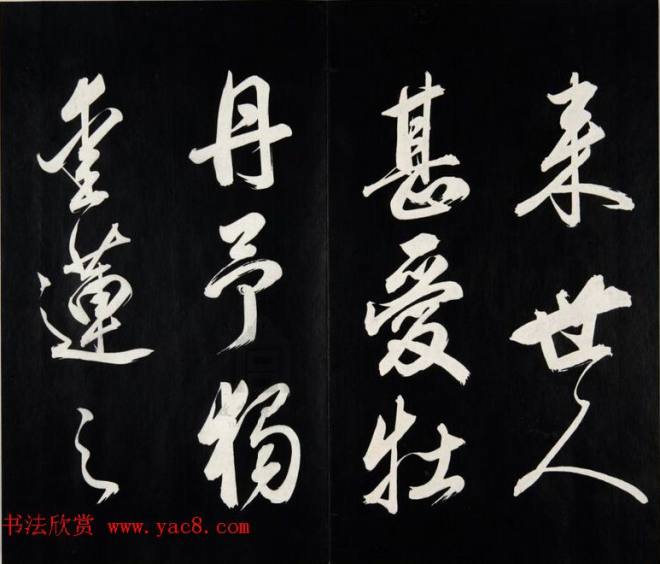 来世人
甚爱牡
丹予独
爱莲之
书法欣赏 www.yac8.com